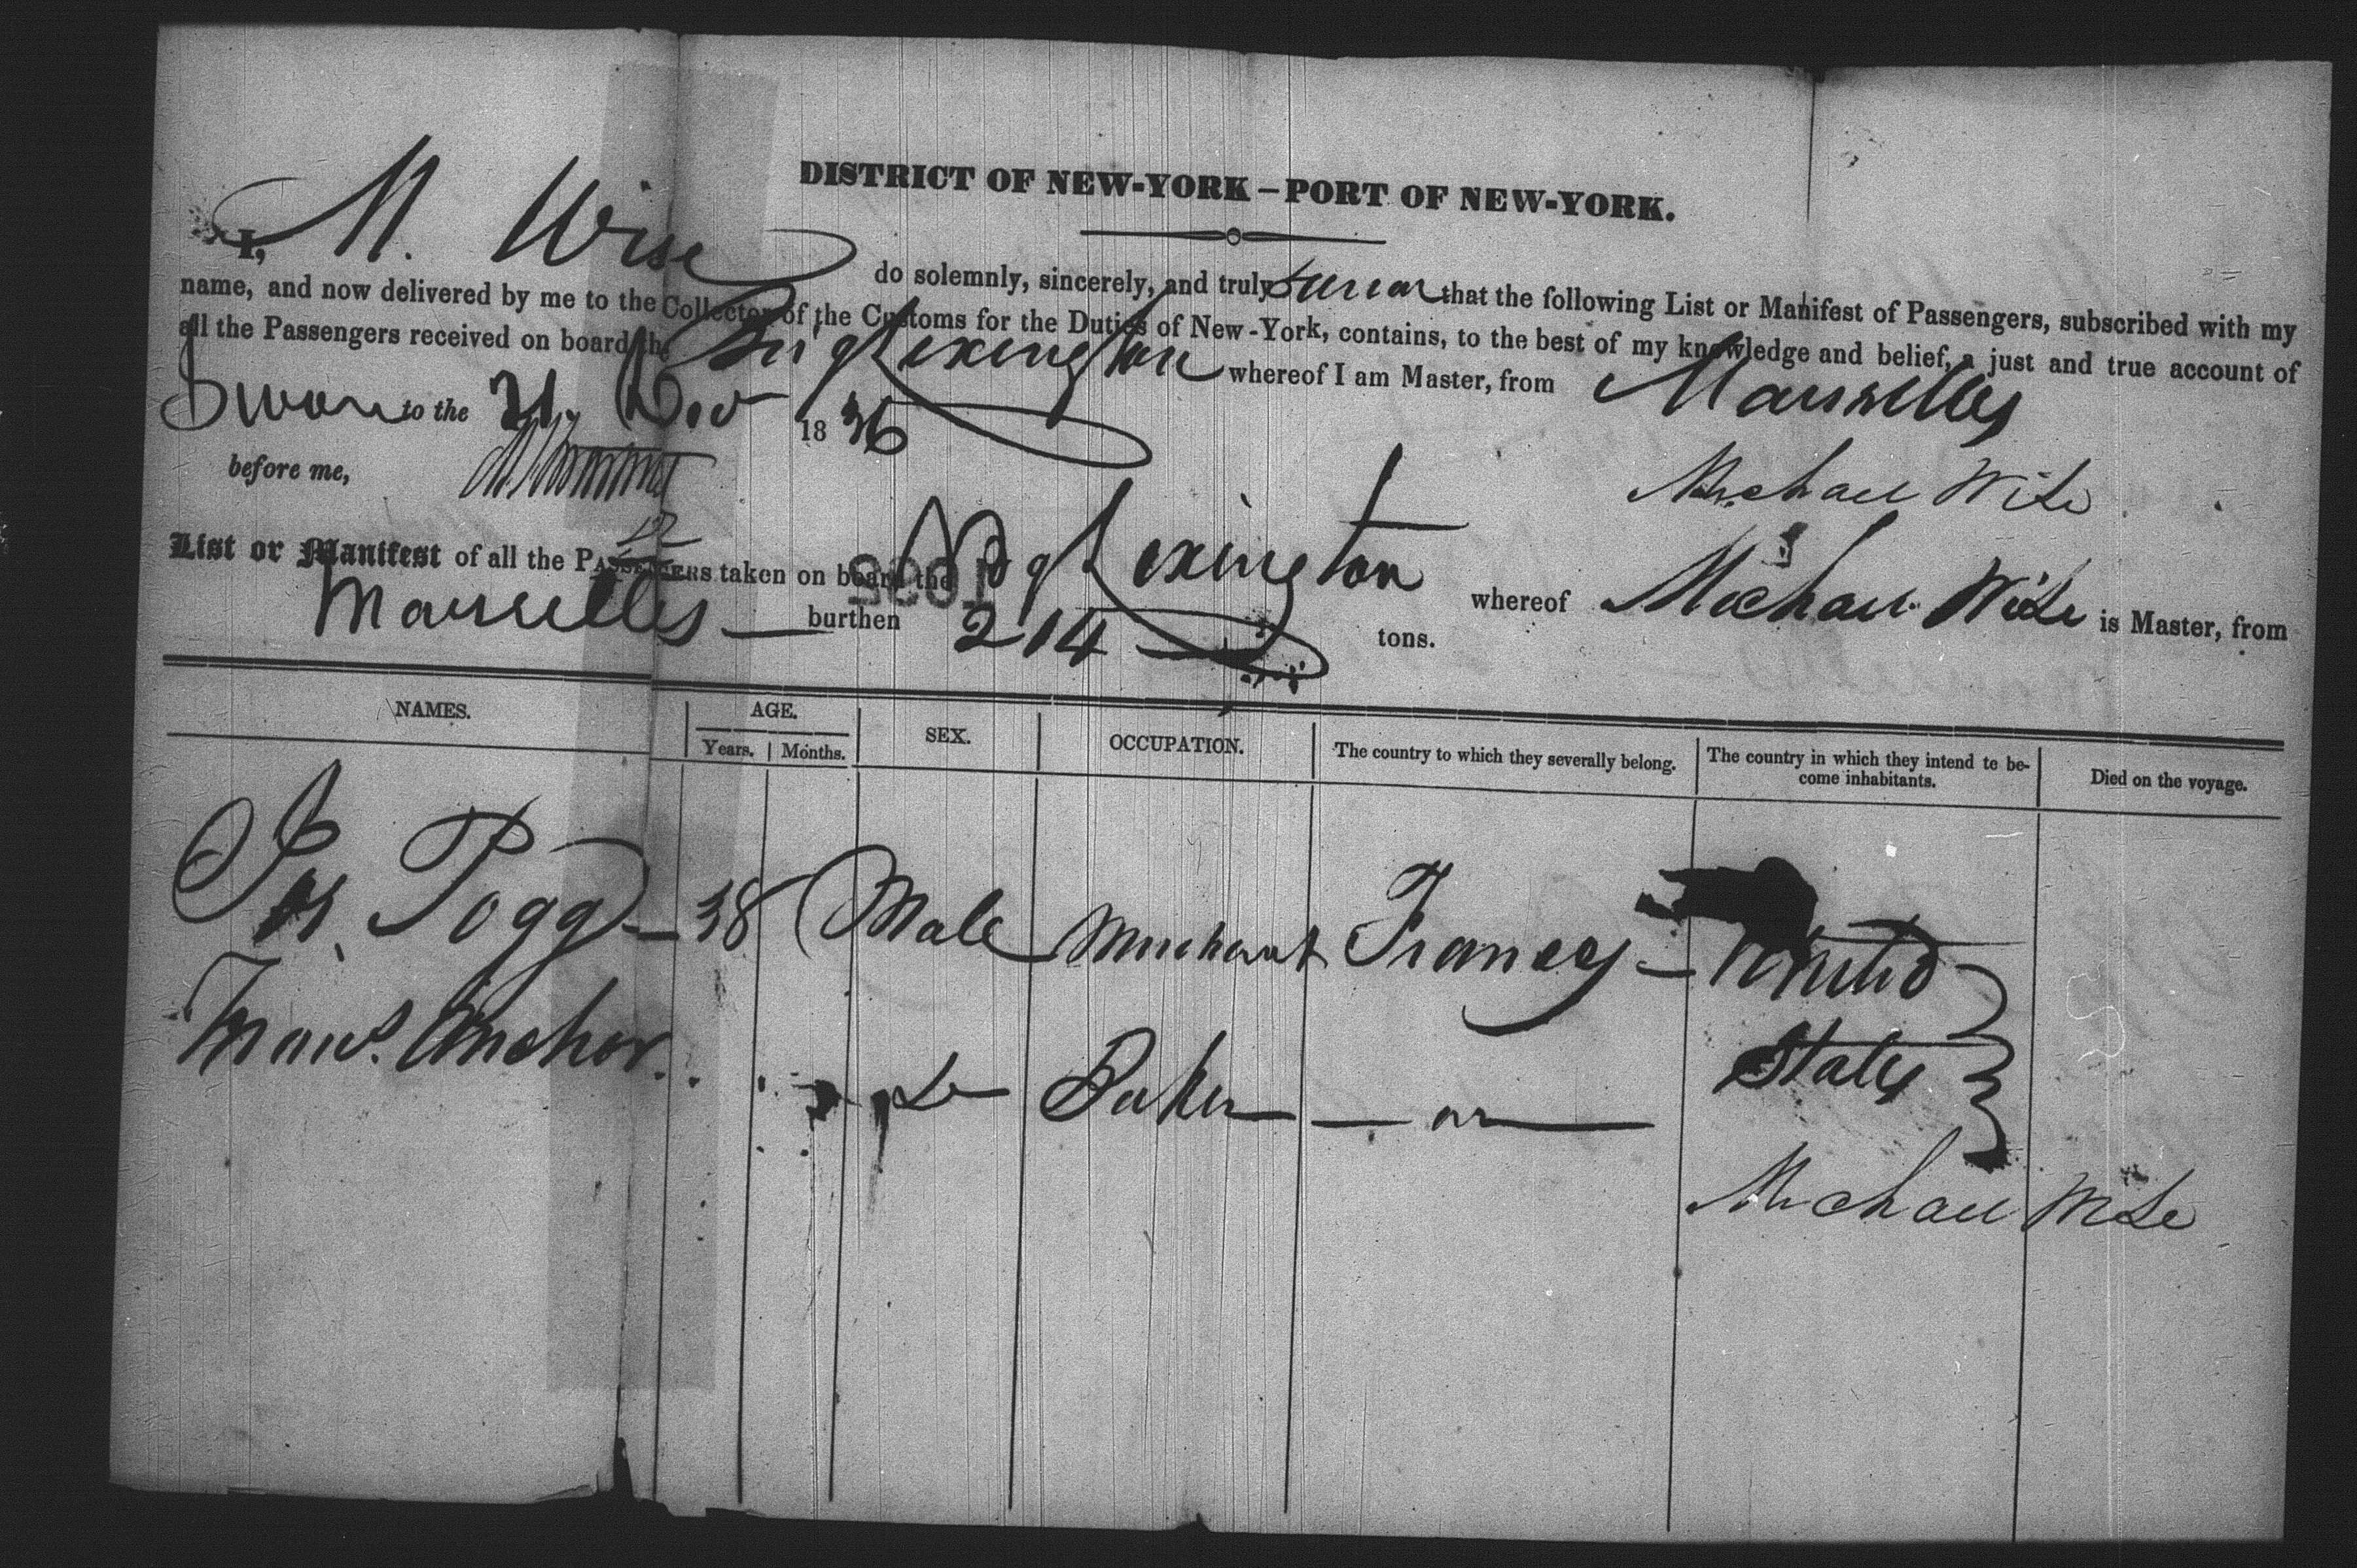 DISTRICT OF NEW-YORK – PORT OF NEW-YORK.
I, M. Wise do solemnly, sincerely, and truly swear that the following List or Manifest of Passengers, subscribed with my
name, and now delivered by me to the Collector of the Customs for the Duties of New-York, contains, to the best of my knowledge and belief, a just and true account of
all the Passengers received on board the Brig Lexington whereof I am Master, from Marseilles
Sworn to the 21 Nov 1836
before me,
Michael Wise
List or Manifest of all the PASSENGERS taken on board the Brig Lexington whereof Michael Wise is Master, from
Marseilles burthen 214 tons.
1035
NAMES. AGE. SEX. OCCUPATION. The country to which they severally belong. The country in which they intend to be- Died on the voyage.
Years. Months. come inhabitants.
Pogg 38 Male Merchant France United
Anchor Do Baker States
Michael Wise